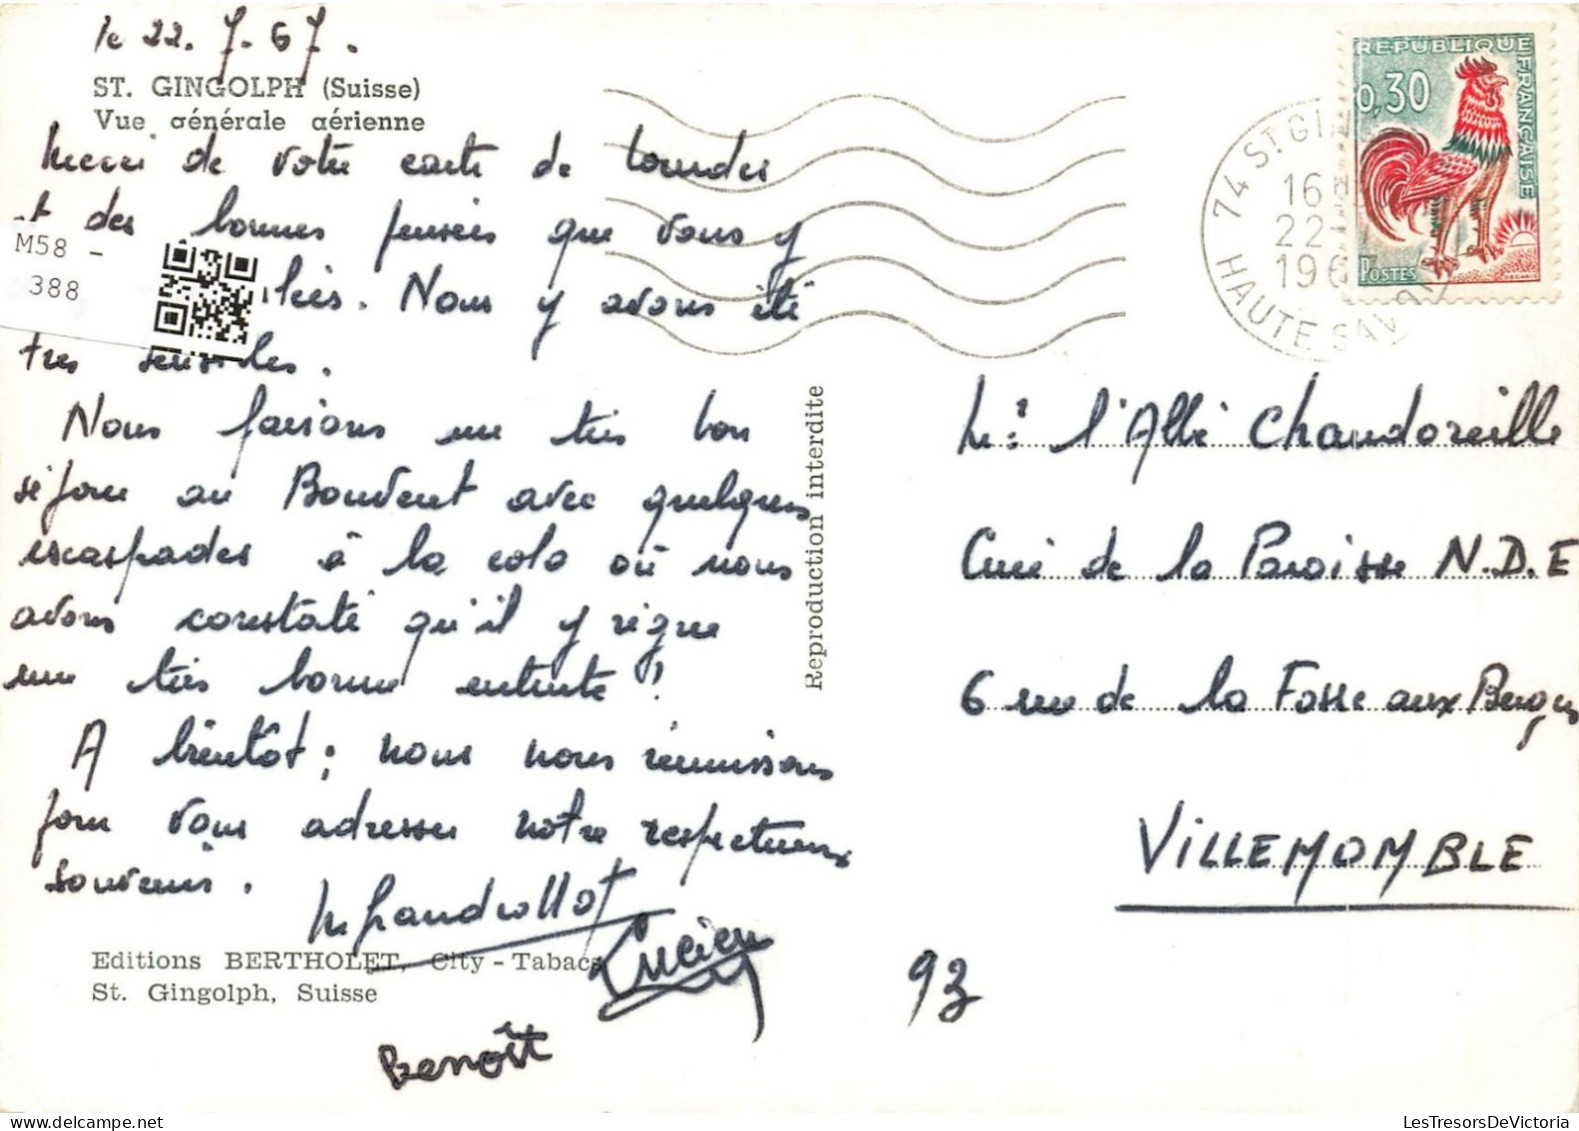 le 22.7.67.
ST. GINGOLPH (Suisse)
Vue générale aérienne
Merci de votre carte de Lourdes
et des bonnes pensées que vous y
Nous y avons été
très sensibles.
Nous faisons un très bon
séjour au Bouvent avec quelques
escapades à la colo où nous
avons constaté qu'il y règne
une très bonne entente !
A bientôt ; nous nous réunissons
pour vous adresser notre respectueux
souvenir.
Lucien
Benoît
Editions BERTHOLET, City - Tabacs
St. Gingolph, Suisse
M58 -
388
Reproduction interdite
REPUBLIQUE FRANÇAISE
0,30
POSTES
74 ST GIN
16 H
22-
1967
HAUTE SAVOIE
l'Abbé Chandoreille
Curé de la Paroisse N.D.E
6 rue de la Fosse aux Bergers
VILLEMOMBLE
93
LesTresorsDeVictoria.com